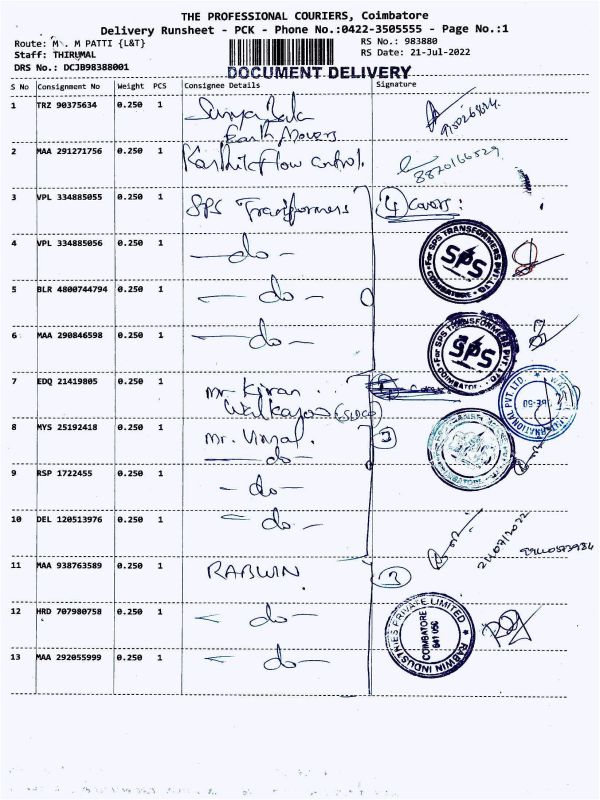 THE PROFESSIONAL COURIERS, Coimbatore
Delivery Runsheet - PCK - Phone No.:0422-3505555 - Page No.:1
Route: M . M PATTI {L&T}
RS No.: 983880
Staff: THIRUMAL
RS Date: 21-Jul-2022
DRS No.: DCJB98388001
DOCUMENT DELIVERY
S No Consignment No Weight PCS Consignee Details Signature
1 TRZ 90375634 0.250 1 Surya Bala
Earth Movers
2 MAA 291271756 0.250 1 Karthik Flow control.
8870166529
3 VPL 334885055 0.250 1 SPS Transformers 4 Covers:
4 VPL 334885056 0.250 1 — do —
For SPS TRANSFORMERS PVT. LTD.
SPS
COIMBATORE
5 BLR 4800744794 0.250 1 — do —
6 MAA 290846598 0.250 1 — do —
For SPS TRANSFORMERS PVT. LTD.
SPS
COIMBATOR
7 EDQ 21419805 0.250 1 mr. Kiran
INTERNATIONAL PVT. LTD.
8 MYS 25192418 0.250 1 mr. Vimal.
— do —
9 RSP 1722455 0.250 1 - do -
10 DEL 120513976 0.250 1 - do -
21/07/2022
11 MAA 938763589 0.250 1 RABWIN 3
12 HRD 707980758 0.250 1 - do -
RABWIN INDUSTRIES PRIVATE LIMITED
COIMBATORE
641 050
13 MAA 292055999 0.250 1 - do -